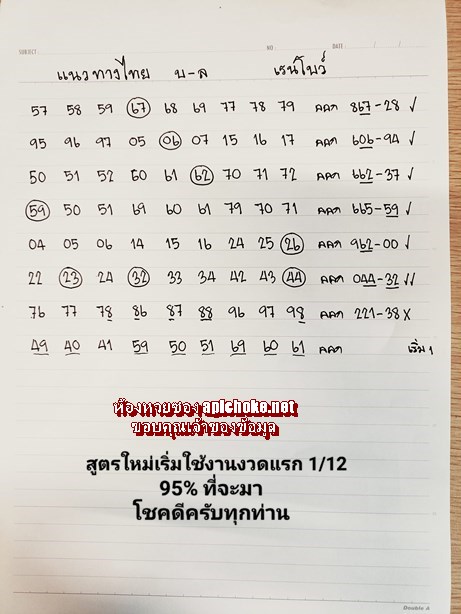 SUBJECT NO DATE / /
แนวทางไทย บ-ล เรนโบว์
57 58 59 67 68 69 77 78 79 ผลออก 867-28 ✓
95 96 97 05 06 07 15 16 17 ผลออก 606-94 ✓
50 51 52 60 61 62 70 71 72 ผลออก 662-37 ✓
59 50 51 69 60 61 79 70 71 ผลออก 665-59 ✓
04 05 06 14 15 16 24 25 26 ผลออก 962-00 ✓
22 23 24 32 33 34 42 43 44 ผลออก 044-32 ✓✓
76 77 78 86 87 88 96 97 98 ผลออก 221-38 X
49 40 41 59 50 51 69 60 61 ผลออก เริ่ม 1
ห้องหวยซอง apichoke.net
ขอบคุณเจ้าของข้อมูล
สูตรใหม่เริ่มใช้งานงวดแรก 1/12
95% ที่จะมา
โชคดีครับทุกท่าน
Double A